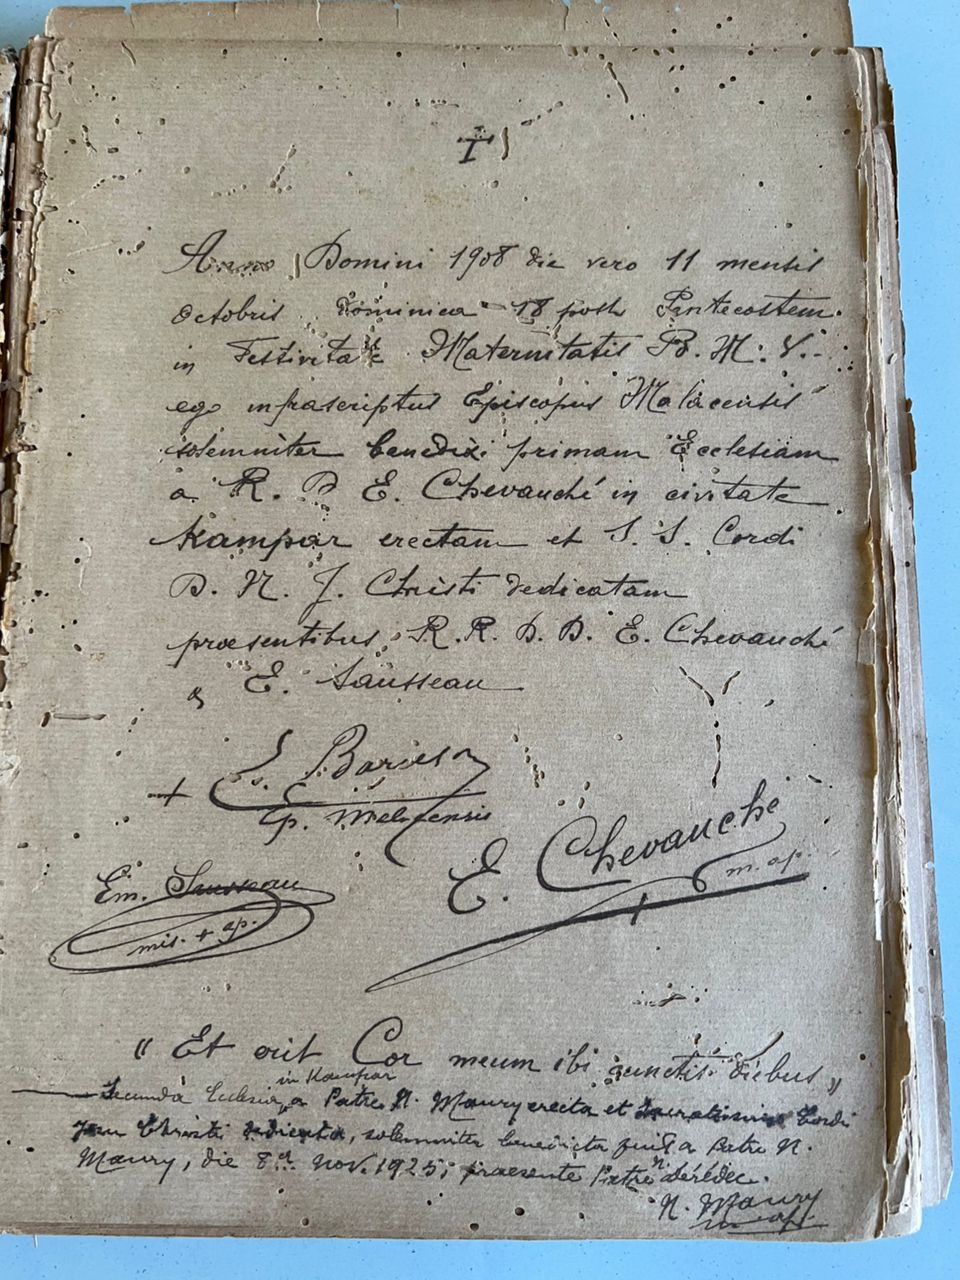 Anno Domini 1908 die vero 11 mensis
Octobris Dominica 18 post Pentecostem
in Festivitate Maternitatis B. M. V.
ego infrascriptus Episcopus Malacensis
solemniter benedixi primam Ecclesiam
a R. D E. Chevauché in civitate
Kampar erectam et S. S. Cordi
D. N. J. Christi dedicatam
praesentibus R. R. D. D. E. Chevauché
& E. Sausseau
+ E. Barillon
Ep. Malacensis
E. Chevauche
m. ap.
Em. Sausseau
mis. + ap.
" Et erit Cor meum ibi cunctis diebus "
in Kampar
Secunda Ecclesia, a Patre N. Maury erecta et Cordi
Jesu Christi, solemniter benedicta fuit a Patre N.
Maury, die 8a Nov. 1925; praesente Patre
N. Maury
m. ap.